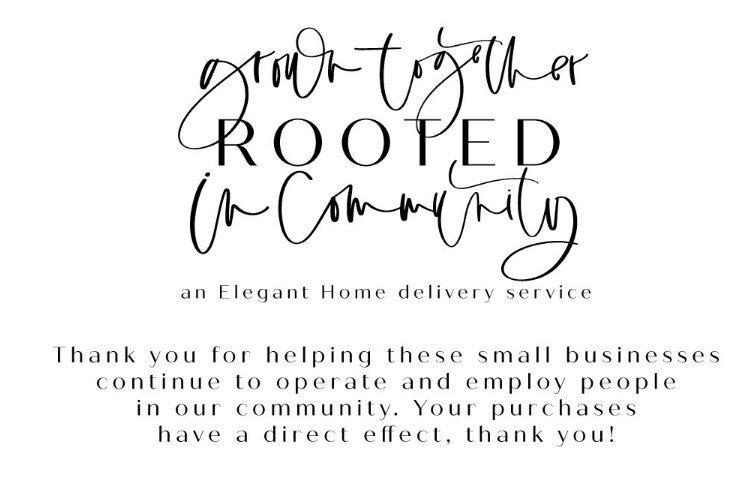 grown together
ROOTED
in Community
an Elegant Home delivery service
Thank you for helping these small businesses
continue to operate and employ people
in our community. Your purchases
have a direct effect, thank you!